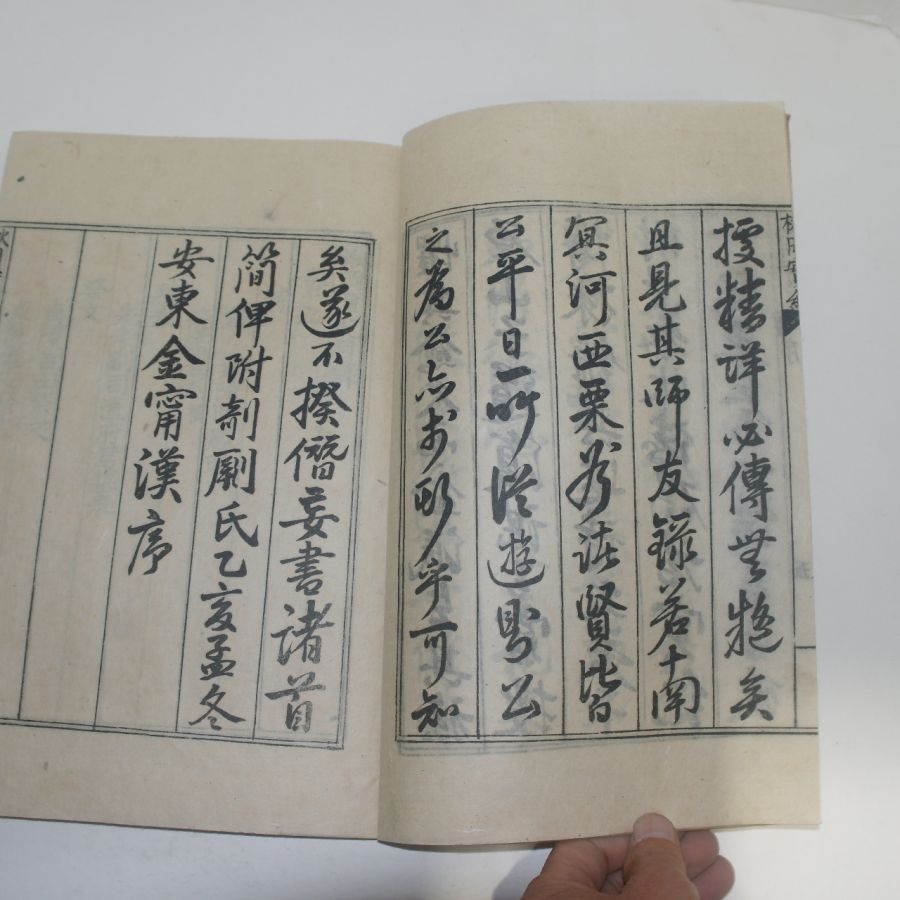 授精詳必傳無疑矣
且見其師友錄若南
冥河西栗谷諸賢皆
公平日所從游則公
之為公亦於斯乎可知
矣遂不揆僭妄書諸首
簡俾附剞劂氏乙亥孟冬
安東金甯漢序